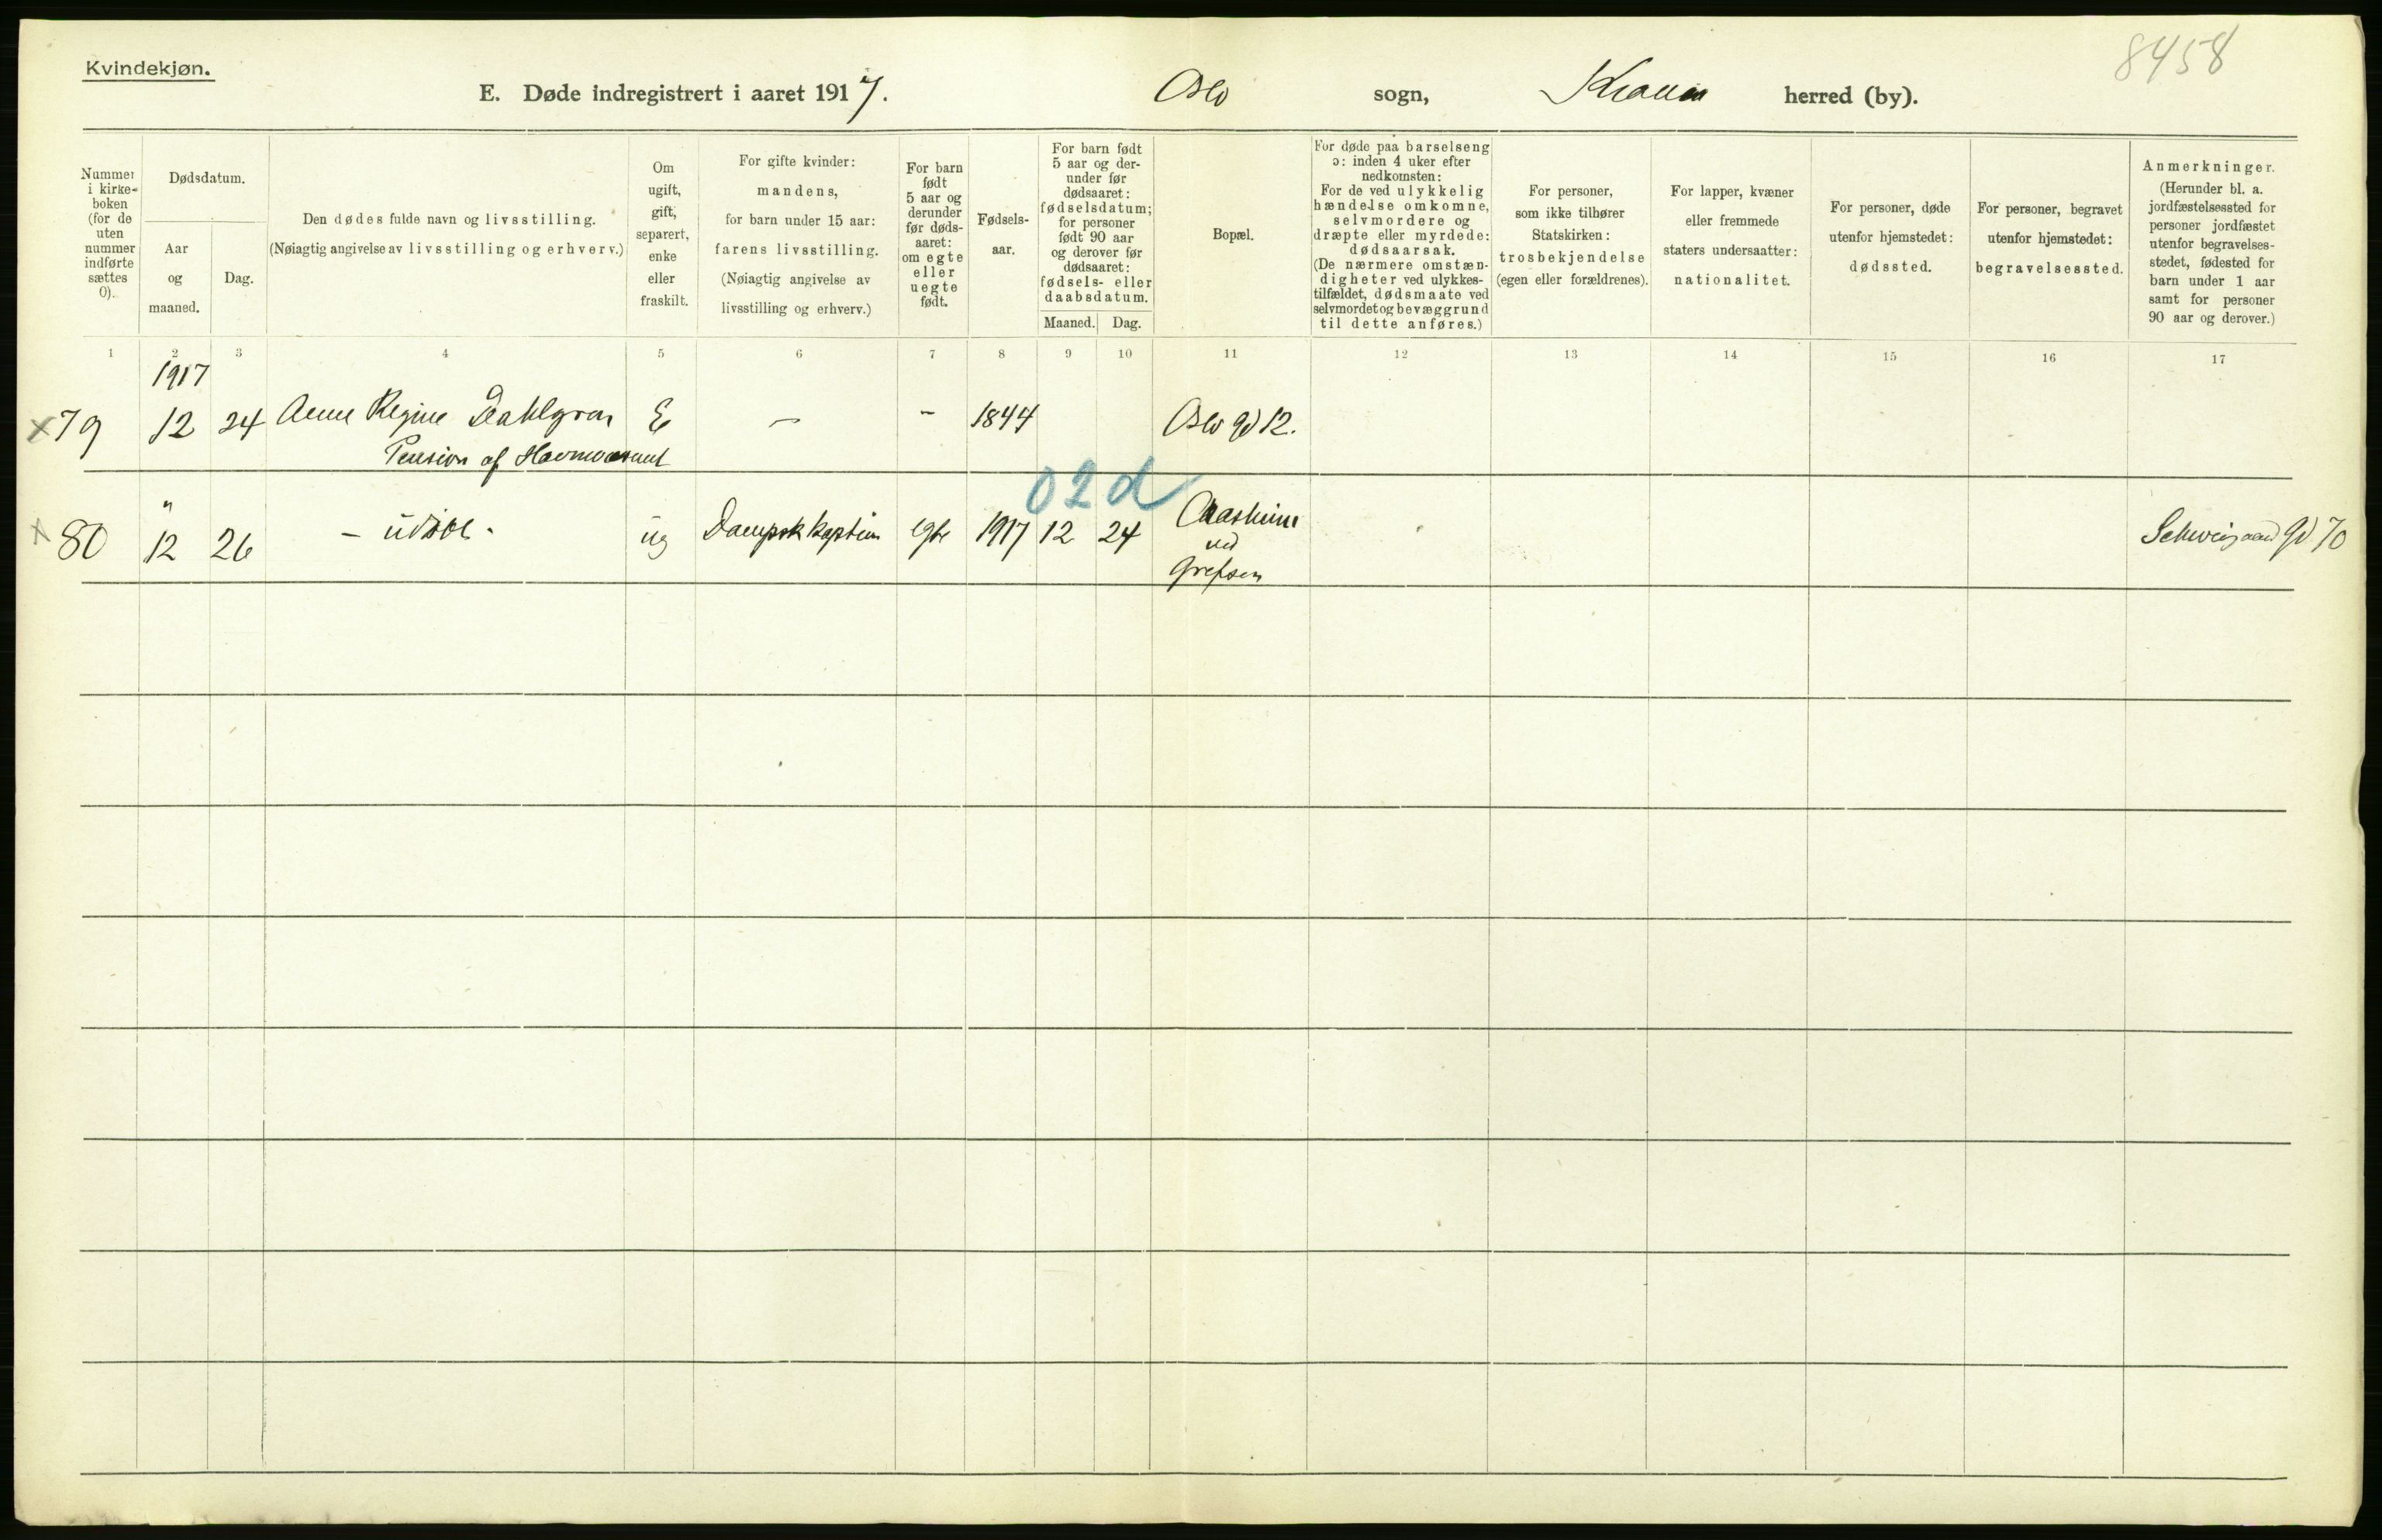 Kvindekjøn.
8458
E. Døde indregistrert i aaret 1917. Oslo sogn, herred (by).
Nummer
i kirke-
boken
(for de
uten
nummer
indførte
sættes
0).
Dødsdatum.
Aar
og
maaned.
Dag.
Den dødes fulde navn og livsstilling.
(Nøiagtig angivelse av livsstilling og erhverv.)
Om
ugift,
gift,
separert,
enke
eller
fraskilt.
For gifte kvinder:
mandens,
for barn under 15 aar:
farens livsstilling.
(Nøiagtig angivelse av
livsstilling og erhverv.)
For barn
født
5 aar og
derunder
før døds-
aaret:
om egte
eller
uegte
født.
Fødsels-
aar.
For barn født
5 aar og der-
under før
dødsaaret:
fødselsdatum;
for personer
født 90 aar
og derover før
dødsaaret:
fødsels- eller
daabsdatum.
Maaned. Dag.
Bopæl.
For døde paa barselseng
ɔ: inden 4 uker efter
nedkomsten:
For de ved ulykkelig
hændelse omkomne,
selvmordere og
dræpte eller myrdede:
dødsaarsak.
(De nærmere omstæn-
digheter ved ulykkes-
tilfældet, dødsmaate ved
selvmordet og bevæggrund
til dette anføres.)
For personer,
som ikke tilhører
Statskirken:
trosbekjendelse
(egen eller forældrenes).
For lapper, kvæner
eller fremmede
staters undersaatter:
nationalitet.
For personer, døde
utenfor hjemstedet:
dødssted.
For personer, begravet
utenfor hjemstedet:
begravelsessted.
Anmerkninger.
(Herunder bl. a.
jordfæstelsessted for
personer jordfæstet
utenfor begravelses-
stedet, fødested for
barn under 1 aar
samt for personer
90 aar og derover.)
1 2 3 4 5 6 7 8 9 10 11 12 13 14 15 16 17
1917
x 79 12 24 Anne Regine Dahlgren E — - 1844 Oslo gd 12.
Pension af
02d
"
x 80 12 26 - udøbt - ug Dampsk kaptein egte 1917 12 24 Aasheim Schweigaard gd 70
ved
Grefsen